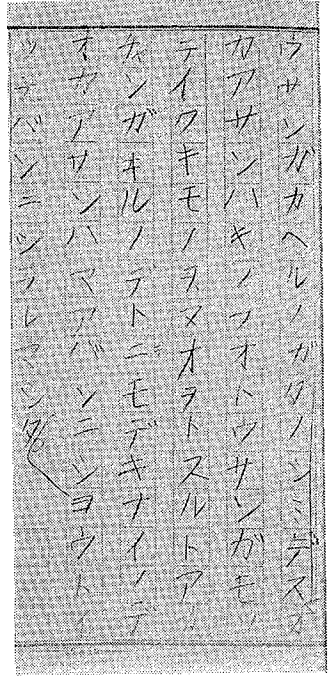 ウサンガカヘルノガタノシミデスオ
カアサンハキノフオトウサンガモツ
テイクキモノヲヌオヲトスルトア
チヤンガキルノデトニモデキナイノデ
オカアサンハマアバンニシヨウトイ
ツテバンニシラレマシタ